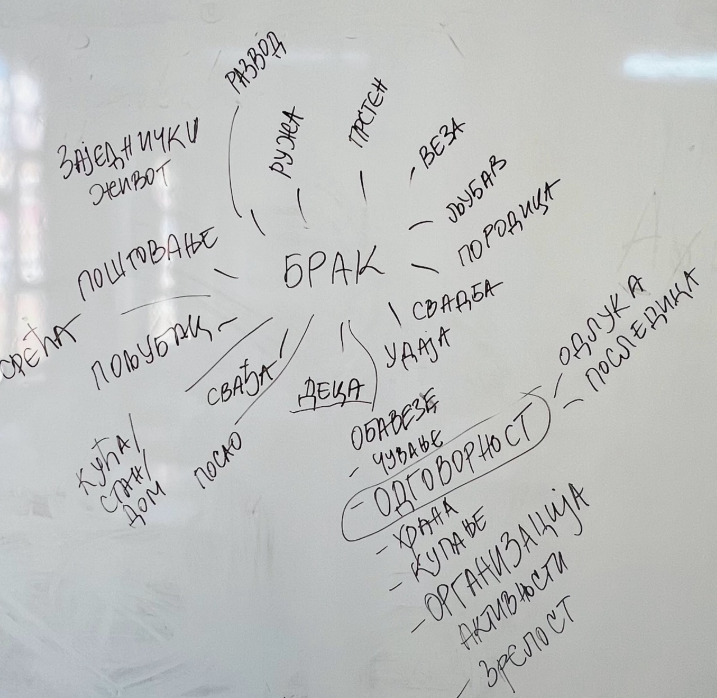 РАЗВОД
РУЖА
ПРСТЕН
ВЕЗА
ЉУБАВ
ПОРОДИЦА
ЗАЈЕДНИЧКИ
ЖИВОТ
ПОШТОВАЊЕ
БРАК
СРЕЋА
ПОЉУБАЦ
СВАЂА
СВАДБА
УДАЈА
ДЕЦА
КУЋА/
СТАН/
ДОМ
ПОСАО
ОБАВЕЗЕ
- ЧУВАЊЕ
- ОДГОВОРНОСТ
- ОДЛУКА
- ПОСЛЕДИЦА
- ХРАНА
- КУПАЊЕ
- ОРГАНИЗАЦИЈА
АКТИВНОСТИ
- ЗРЕЛОСТ